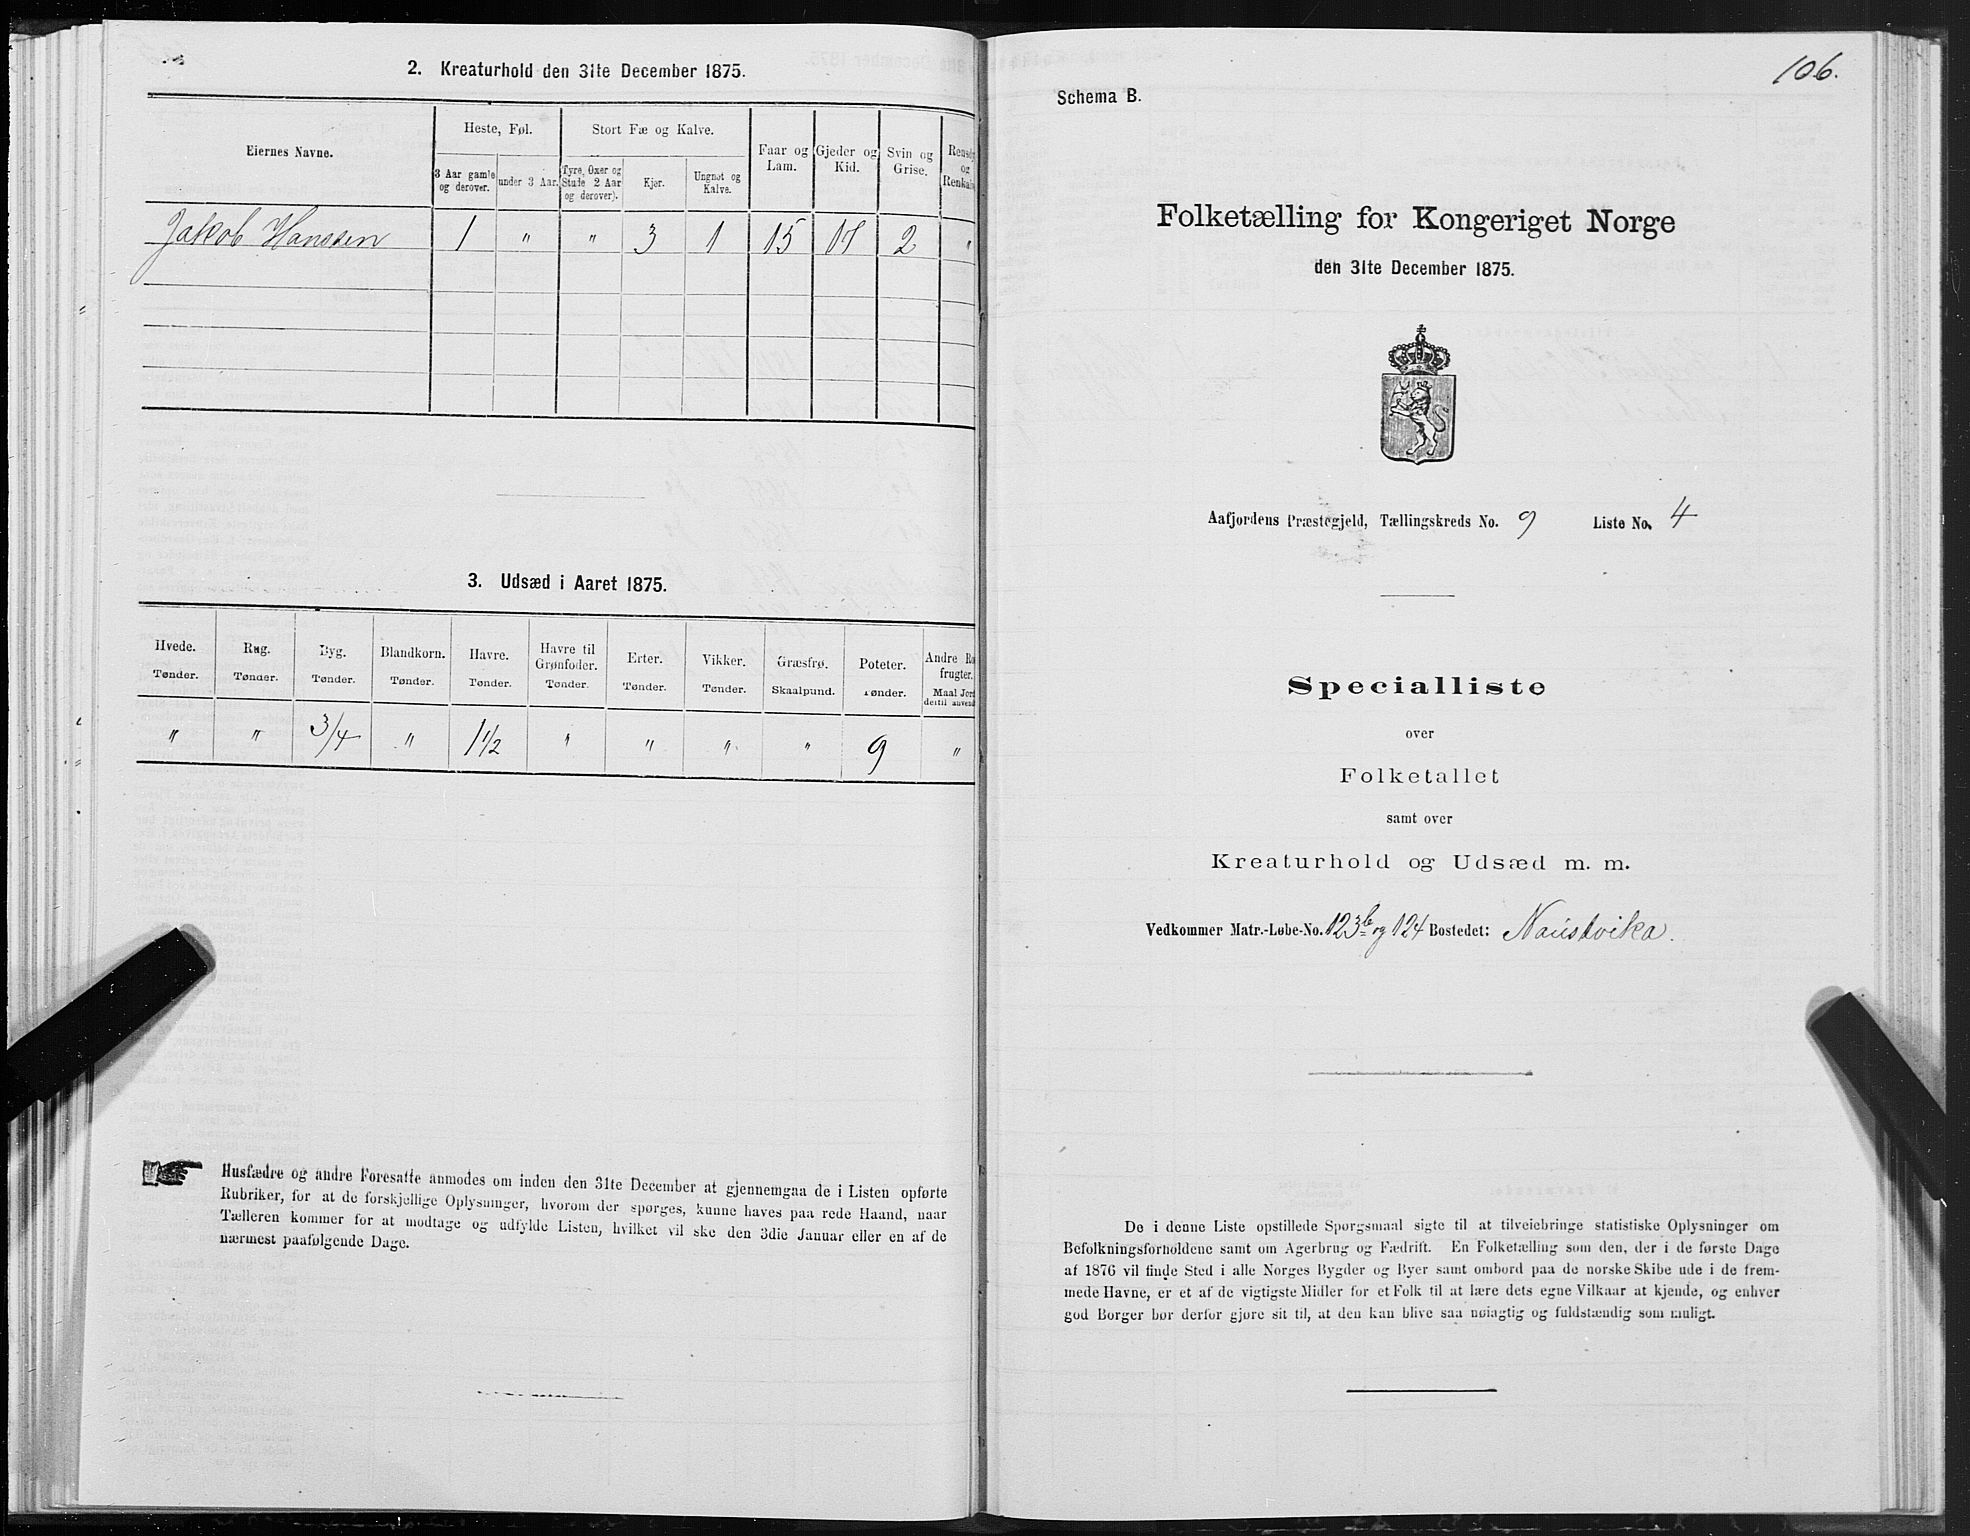 2. Kreaturhold den 31te December 1875.
Eiernes Navne.
Heste, Føl.
Stort Fæ og Kalve.
Faar og Lam.
Gjeder og Kid.
Svin og Grise.
og
3 Aar gamle og derover.
under 3 Aar.
Tyre, Oxer og Stude 2 Aar og derover).
Kjør.
Ungnøt og Kalve.
Jakob Hanssen 1 " " 3 1 15 17 2 "
3. Udsæd i Aaret 1875.
Hvede. Tønder.
Rug. Tønder.
Byg. Tønder.
Blandkorn. Tønder.
Havre. Tønder.
Havre til Grønfoder. Tønder.
Erter. Tønder.
Vikker. Tønder.
Græsfrø. Skaalpund.
Poteter. Tønder.
Andre
frugter.
Maal Jord
dertil
" " 3/4 " 1 1/2 " " " " 9 "
Husfædre og andre Foresatte anmodes om inden den 31te December at gjennemgaa de i Listen opførte
Rubriker, for at de forskjellige Oplysninger, hvorom der spørges, kunne haves paa rede Haand, naar
Tælleren kommer for at modtage og udfylde Listen, hvilket vil ske den 3die Januar eller en af de
nærmest paafølgende Dage.
106.
Schema B.
Folketælling for Kongeriget Norge
den 31te December 1875.
Aafjordens Præstegjeld, Tællingskreds No. 9 Liste No. 4
Specialliste
over
Folketallet
samt over
Kreaturhold og Udsæd m. m.
Vedkommer Matr.-Løbe-No. 123b og 124 Bostedet: Naustvika.
De i denne Liste opstillede Spørgsmaal sigte til at tilveiebringe statistiske Oplysninger om
Befolkningsforholdene samt om Agerbrug og Fædrift. En Folketælling som den, der i de første Dage
af 1876 vil finde Sted i alle Norges Bygder og Byer samt ombord paa de norske Skibe ude i de frem-
mede Havne, er et af de vigtigste Midler for et Folk til at lære dets egne Vilkaar at kjende, og enhver
god Borger bør derfor gjøre sit til, at den kan blive saa nøiagtig og fuldstændig som muligt.